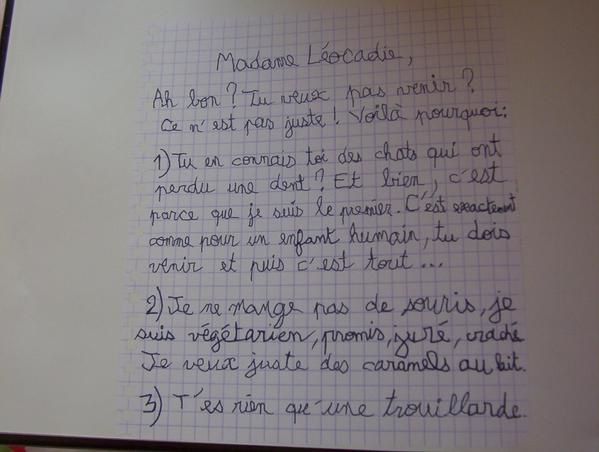 Madame Léocadie,
Ah bon? Tu veux pas venir?
Ce n'est pas juste! Voilà pourquoi:
1) Tu en connais toi des chats qui ont
perdu une dent? Et bien, c'est
parce que je suis le premier. C'est exactement
comme pour un enfant humain, tu dois
venir et puis c'est tout...
2) Je ne mange pas de souris, je
suis végétarien, promis, juré, craché
Je veux juste des caramels au lait.
3) T'es rien qu'une trouillarde.